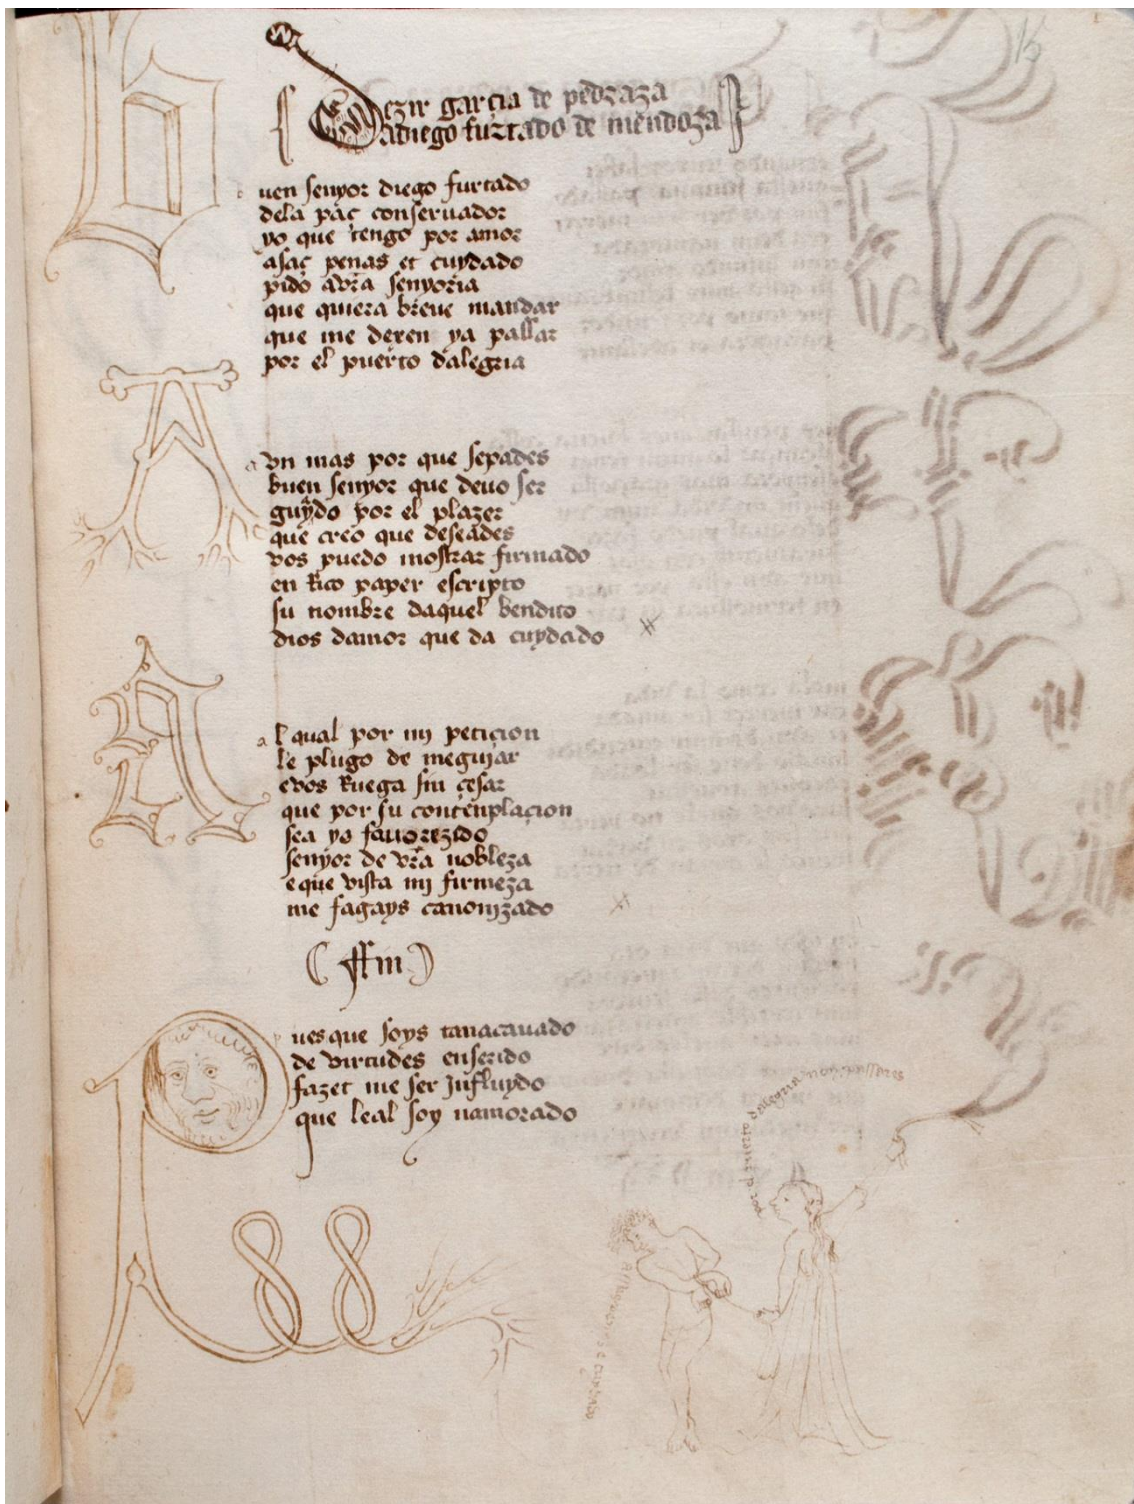 Dezir garçia de pedraza
a diego furtado de mendoza
Buen senyor diego furtado
dela paç conseruador
yo que tengo por amor
asaç penas et cuydado
pido a vr̃a senyoria
que quiera breue mandar
que me dexen ya passar
por el puerto dalegria
Avn mas por que sepades
buen senyor que deuo ser
guỹdo por el plazer
que creo que deseades
vos puedo mostrar firmado
en Rico paper escripto
su nombre daquel bendito
dios damor que da cuydado
Al qual por mi peticion
le plugo de meguiar
e vos Ruega sin çesar
que por su contenplaçion
sea yo fauorezido
senyor de vr̃a nobleza
e que vista mi firmeza
me fagays canonizado
ffin
Pues que soys tan acauado
de virtudes enserido
fazet me ser Jnfluydo
que leal soy namorado
por el puerto dalegria